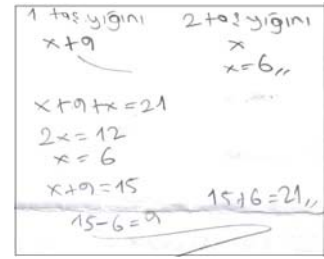 1 taş yığını 2 taş yığını
x+9 x
x=6,,
x+9+x=21
2x=12
x=6
x+9=15 15+6=21,,
15-6=9